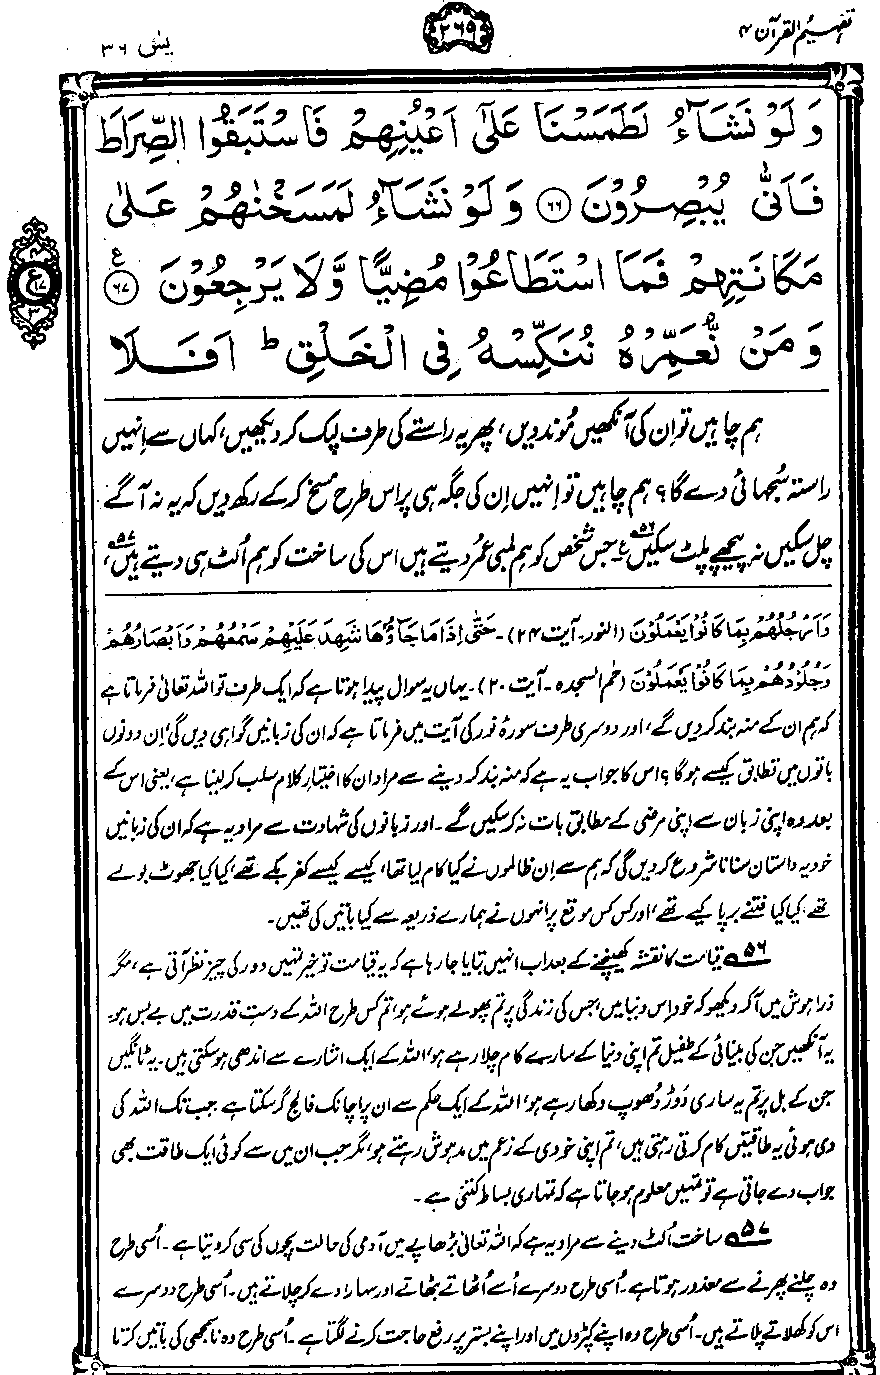 تفہیم القرآن ۴
۲۶۹
یٰسٓ ۳۶
وَلَوْ نَشَآءُ لَطَمَسْنَا عَلٰٓى اَعْيُنِهِمْ فَاسْتَبَقُوا الصِّرَاطَ
فَاَنّٰى يُبْصِرُوْنَ ﴿۶۶﴾ وَلَوْ نَشَآءُ لَمَسَخْنٰهُمْ عَلٰى
مَكَانَتِهِمْ فَمَا اسْتَطَاعُوْا مُضِيًّا وَّلَا يَرْجِعُوْنَ ﴿۶۷﴾ ع
وَمَنْ نُّعَمِّرْهُ نُنَكِّسْهُ فِى الْخَلْقِ ط اَفَلَا
ہم چاہیں تو اِن کی آنکھیں مُوند دیں، پھر یہ راستے کی طرف لپک کر دیکھیں، کہاں سے اِنہیں
راستہ سُجھائی دے گا؟ ہم چاہیں تو اِنہیں اِن کی جگہ ہی پر اس طرح مسخ کر کے رکھ دیں کہ یہ نہ آگے
چل سکیں نہ پیچھے پلٹ سکیں۵۶ ع جس شخص کو ہم لمبی عمُر دیتے ہیں اس کی ساخت کو ہم اُلٹ ہی دیتے ہیں۵۷،
وَاَرْجُلُهُمْ بِمَا كَانُوْا يَعْمَلُوْنَ (النور۔ آیت ۲۴)۔ حَتّٰى اِذَا مَا جَآؤُهَا شَهِدَ عَلَيْهِمْ سَمْعُهُمْ وَاَبْصَارُهُمْ
وَجُلُوْدُهُمْ بِمَا كَانُوْا يَعْمَلُوْنَ (حٰم السجدہ۔ آیت ۲۰)۔ یہاں یہ سوال پیدا ہوتا ہے کہ ایک طرف تو اللہ تعالیٰ فرماتا ہے
کہ ہم ان کے منہ بند کر دیں گے، اور دوسری طرف سورۂ نور کی آیت میں فرماتا ہے کہ ان کی زبانیں گواہی دیں گی، اِن دونوں
باتوں میں تطابق کیسے ہوگا؟ اس کا جواب یہ ہے کہ منہ بند کر دینے سے مراد ان کا اختیارِ کلام سلب کر لینا ہے، یعنی اس کے
بعد وہ اپنی زبان سے اپنی مرضی کے مطابق بات نہ کر سکیں گے۔ اور زبانوں کی شہادت سے مراد یہ ہے کہ ان کی زبانیں
خود یہ داستان سنانا شروع کر دیں گی کہ ہم سے اِن ظالموں نے کیا کام لیا تھا، کیسے کیسے کفر بکے تھے، کیا کیا جھوٹ بولے
تھے، کیا کیا فتنے برپا کیے تھے، اور کس کس موقع پر انہوں نے ہمارے ذریعہ سے کیا باتیں کی تھیں۔
۵۶ قیامت کا نقشہ کھینچنے کے بعد اب انہیں بتایا جا رہا ہے کہ یہ قیامت تو خیر تمہیں دور کی چیز نظر آتی ہے، مگر
ذرا ہوش میں آکر دیکھو کہ خود اِس دنیا میں، جس کی زندگی پر تم پھولے ہوئے ہو، تم کس طرح اللہ کے دستِ قدرت میں بے بس ہو۔
یہ آنکھیں جن کی بینائی کے طفیل تم اپنی دنیا کے سارے کام چلا رہے ہو، اللہ کے ایک اشارے سے اندھی ہو سکتی ہیں۔ یہ ٹانگیں
جن کے بل پر تم یہ ساری دَوڑ دُھوپ دکھا رہے ہو، اللہ کے ایک حکم سے ان پر اچانک فالج گر سکتا ہے۔ جب تک اللہ کی
دی ہوئی یہ طاقتیں کام کرتی رہتی ہیں، تم اپنی خودی کے زعم میں مدہوش رہتے ہو، مگر جب ان میں سے کوئی ایک طاقت بھی
جواب دے جاتی ہے تو تمہیں معلوم ہو جاتا ہے کہ تمہاری بساط کتنی ہے۔
۵۷ ساخت اُلٹ دینے سے مراد یہ ہے کہ اللہ تعالیٰ بڑھاپے میں آدمی کی حالت بچوں کی سی کر دیتا ہے۔ اُسی طرح
وہ چلنے پھرنے سے معذور ہوتا ہے۔ اُسی طرح دوسرے اُسے اُٹھاتے بٹھاتے اور سہارا دے کر چلاتے ہیں۔ اُسی طرح دوسرے
اس کو کھلاتے پلاتے ہیں۔ اُسی طرح وہ اپنے کپڑوں میں اور اپنے بستر پر رفع حاجت کرنے لگتا ہے۔ اُسی طرح وہ ناسمجھی کی باتیں کرتا